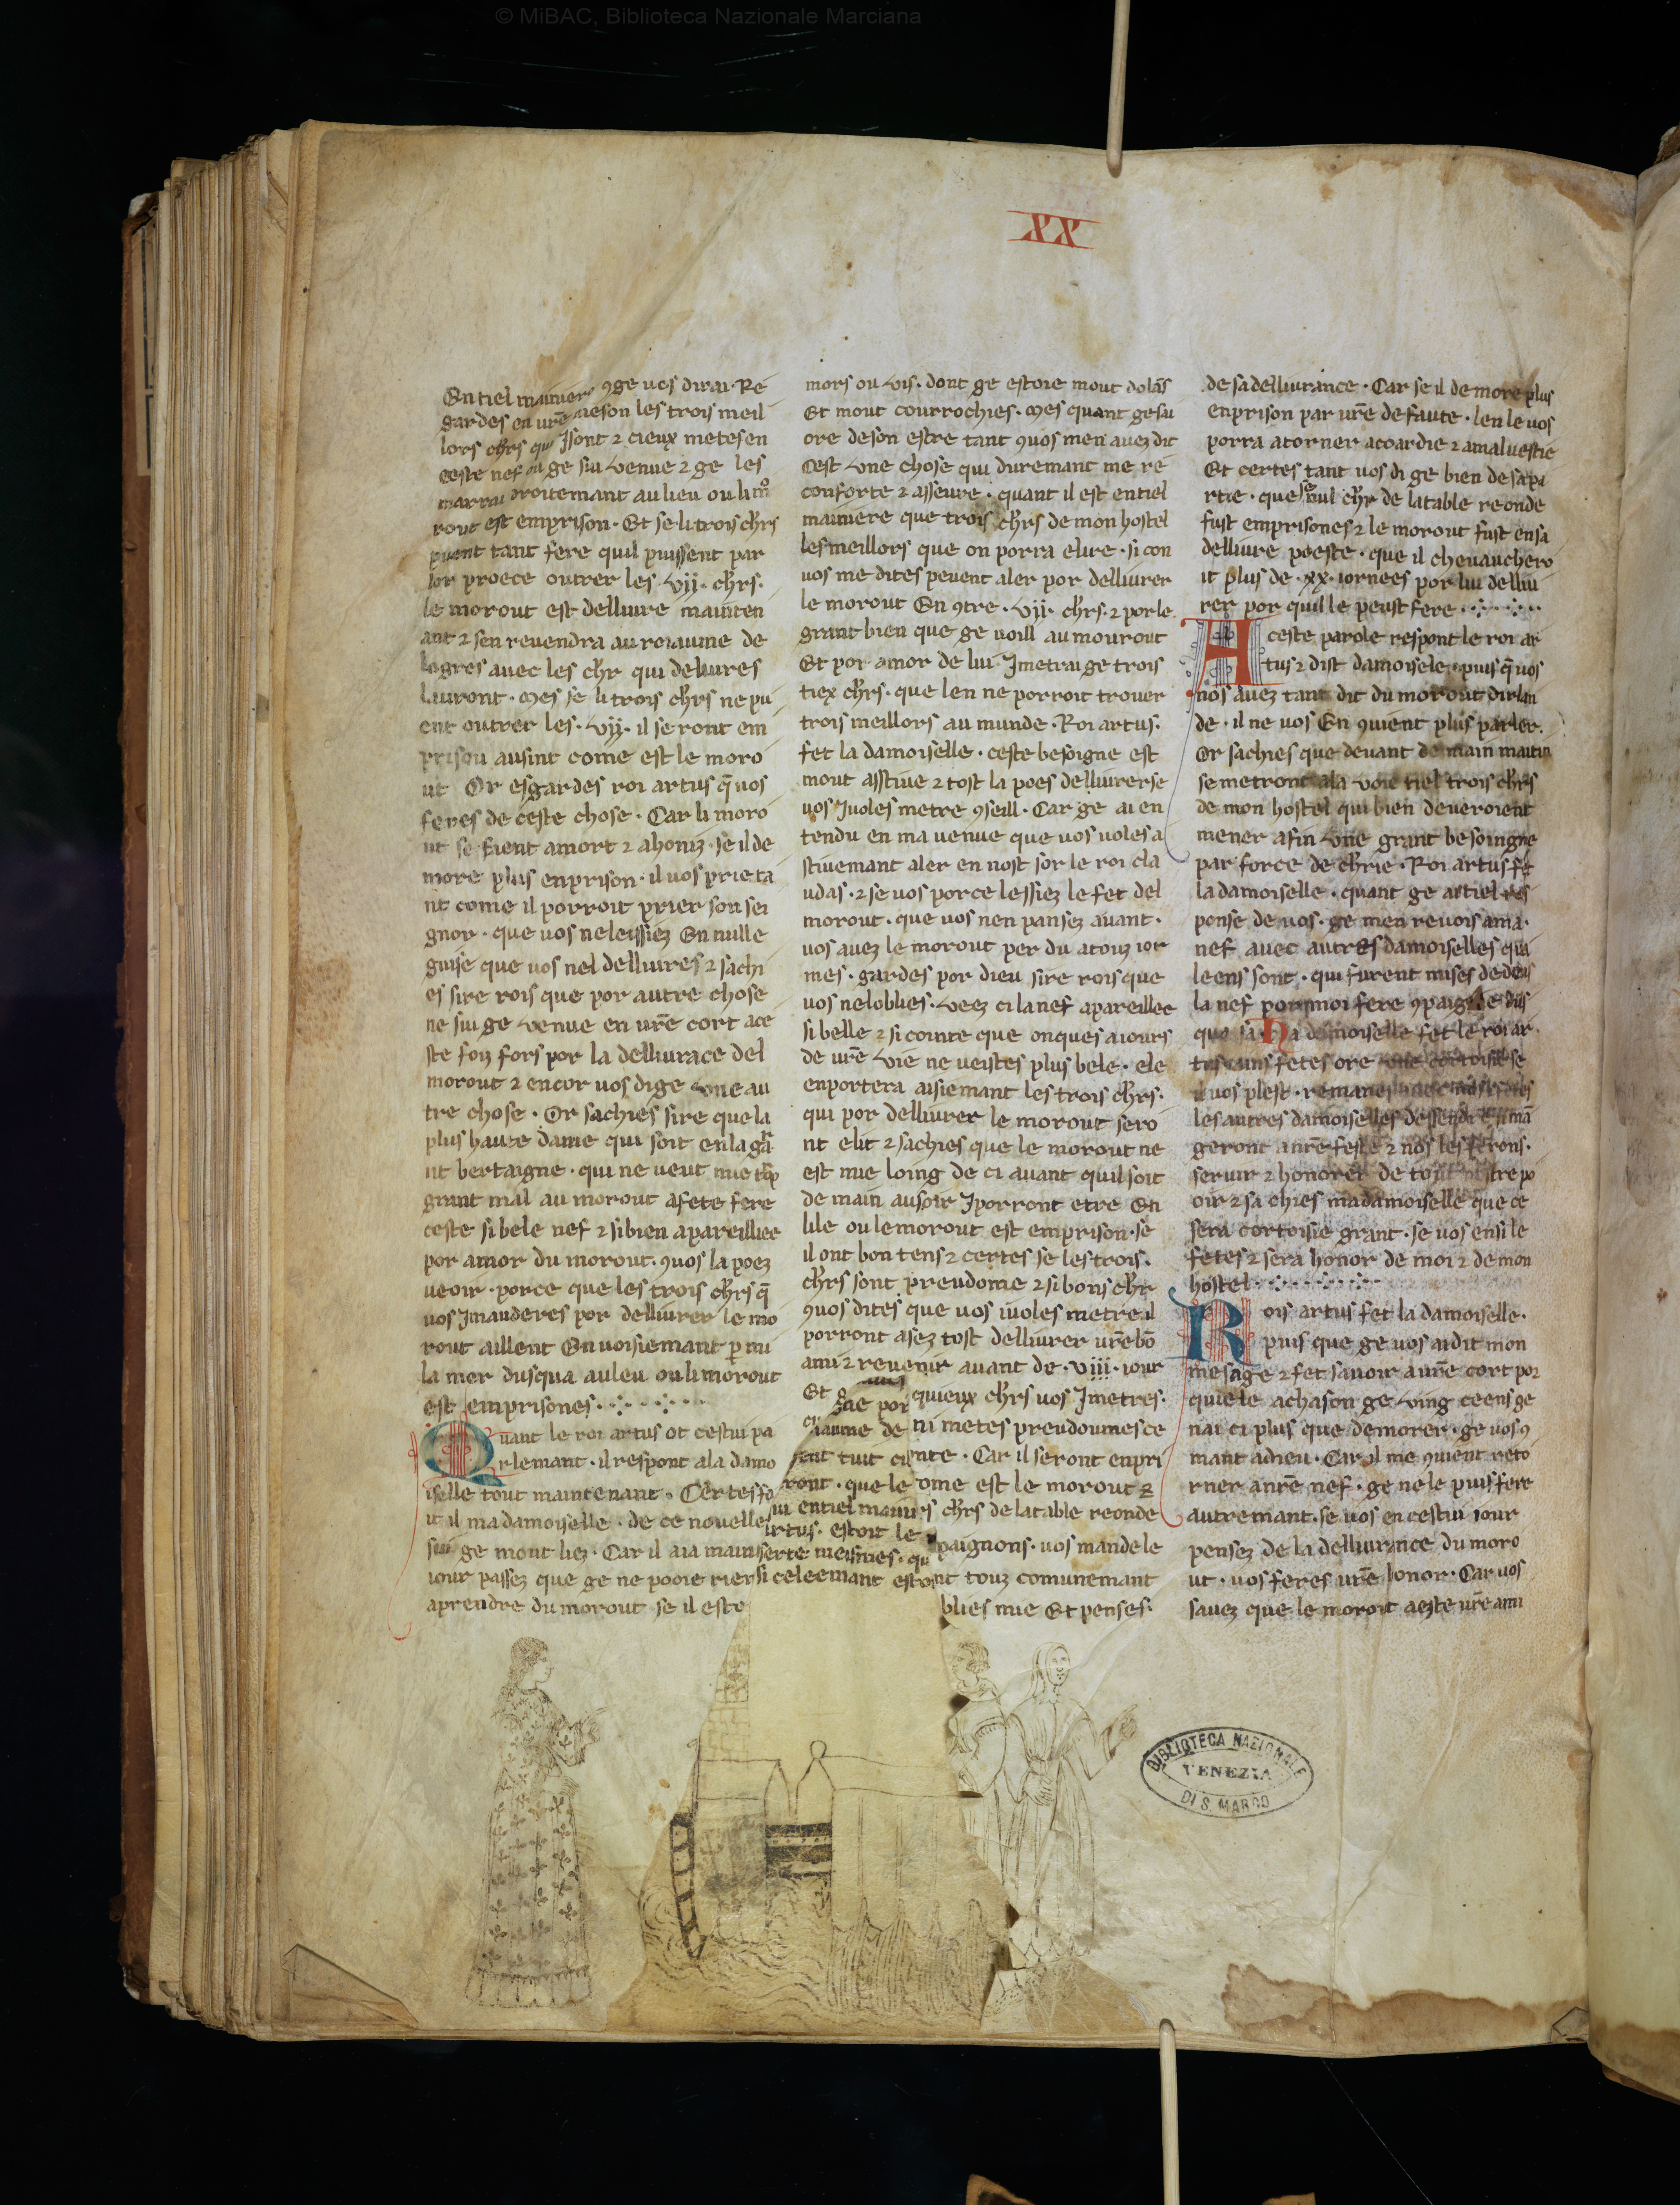 © MiBAC, Biblioteca Nazionale Marciana
XX
En tiel manier ꝯge uos dirai · Re
gardes en ur̄e meson les trois meil
lors chr̄s qui Isont ⁊ cieux metes en
ceste nef ou ge sui venue ⁊ ge les
marrai droitemant au lieu ou li mo
rout est emprison · Et se li trois chr̄s
puent tant fere quil puissent par
lor proece outrer les · vij · chr̄s ·
le morout est dellivre mainten
ant ⁊ sen revendra au roiaume de
logres avec les chr̄ qui delivres
lauront · Mes se li trois chr̄s ne pu
ent outrer les · vij · il seront em
prison ausint come est le moro
ut Or esgardes roi artus q̄ uos
feres de ceste chose · Car li moro
ut se tient a mort ⁊ a honiz · se il de
more plus en prison · il uos prie ta
nt come il porroit prier son sei
gnor · que uos ne leissiez En nulle
guise que uos nel dellivres ⁊ sachi
es sire rois que por autre chose
ne sui ge venue en ur̄e cort a ce
ste foiz fors por la dellivrace del
morout ⁊ encor uos di ge vne au
tre chose · Or sachies sire que la
plus haute dame qui soit en la gr̄a
nt bertaigne · qui ne veut mie
grant mal au morout a fete fere
ceste si bele nef ⁊ si bien apareilliee
por amor du morout · ꝯuos la poez
veoir · por ce que les trois chr̄s q̄
uos Imanderes por dellivrer le mo
rout aillent Envoisiemant p̱ mi
la mer dusqua au leu ou li morout
est emprisones ·
Quant le roi artus ot cestui pa
rlemant · il respont a la damo
iselle tout maintenant · Certes fe
it il ma damoiselle · de ce novelle
sui ge mout liez · Car il a ia maint
iour passez que ge ne pooie rien
aprendre du morout se il esto
mors ou vis · dont ge estoie mout dolās
Et mout courrochies · Mes quant ge sai
ore de son estre tant ꝯuos men avez dit
Cest vne chose qui duremant me re
conforte ⁊ asseure · quant il est en tiel
maniere que trois chr̄s de mon hostel
les meillors que on porra elire · si con
uos me dites pevent aler por dellivrer
le morout En ꝯtre · vij · chr̄s · ⁊ por le
grant bien que ge voill au mourout
Et por amor de lui Imetrai ge trois
tiex chr̄s · que len ne porroit trouer
trois meillors au munde · Roi artus ·
fet la damoiselle · ceste besoigne est
mout asstiue ⁊ tost la poes dellivrer se
uos Iuoles metre ꝯseill · Car ge ai en
tendu en ma venue que uos uoles a
stiuemant aler en nost sor le roi cla
udas · ⁊ se uos por ce lessiez le fet del
morout · que uos nen pansez avant ·
uos avez le morout per du a toiz ior
mes · gardes por dieu sire rois que
uos nel oblies · Veez ci la nef apareillee
si belle ⁊ si cointe que onques a iours
de ur̄e vie ne veistes plus bele · ele
enportera aisiemant les trois chr̄s ·
qui por dellivrer le morout sero
nt elit ⁊ sachies que le morout ne
est mie loing de ci avant quil soit
de main au soir Iporront etre En
lile ou le morout est emprison · se
il ont bon tens ⁊ certes se les trois ·
chr̄s sont preudome ⁊ si bons chr̄
ꝯuos dites que uos iuoles metre il
porront asez tost dellivrer ur̄e bō
ami ⁊ revenir avant de · viij · iour
Et quieux chr̄s uos Imetres ·
ni metes preudoumes ce
sent tuit cu nte · Car il seront enpri
ront · que le ome est le morout ⁊
ui en tiel manie s chr̄s de la table reonde
rtus · estoit le paignons · uos mande le
serte meismes · qu
si celeemant estoi nt touz comunemant
blies mie Et penses ·
de sa dellivrance · Car se il demore plus
en prison par ur̄e defaute · len le uos
porra atorner a coardie ⁊ a malvestie
Et certes tant uos di ge bien de sa pa
rtie · que se nul chr̄ de la table reonde
fust emprisones ⁊ le morout fust en sa
dellivre poeste · que il chevauchero
it plus de · xx · iornees por lui delliv
rer por quil le peust fere ·
A ceste parole respont le roi ar
tus ⁊ dist damoisele · puis q̄ uos
nos avez tant dit du morout dirlan
de · il ne uos En ꝯuient plus parler ·
Or sachies que devant demain maitin
se metront a la voie tiel trois chr̄s
de mon hostel qui bien deveroient
mener a fin vne grant besoingne
par force de chr̄ie · Roi artus fet
la damoiselle · quant ge ai tiel res
ponse de uos · ge men revois a ma ·
nef avec autres damoiselles qua
leens sont · qui furent mises dedens
la nef por moi fere ꝯpaignie dus
qua sa · Ha damoiselle fet le roi ar ·
tus uns fetes ore vne cortoisie se
il uos plest · remanes
les autres damoiselles
geront a nr̄e feste ⁊ nos les ferons ·
servir ⁊ honorer de tout nostre po
oir ⁊ sachies ma damoiselle que ce
sera cortoisie grant · se uos ensi le
fetes ⁊ sera honor de moi ⁊ de mon
hostel ·
Rois artus fet la damoiselle ·
puis que ge uos ai dit mon
mesage ⁊ fet savoir a ur̄e cort por
quiele achason ge ving ceens ge
nai ci plus que demorer · ge uos ꝯ
mant a dieu · Car il me ꝯuient reto
rner a nr̄e nef · ge ne le puis fere
autremant · se uos en cestui iour
pensez de la dellivrance du moro
ut · uos feres ur̄e honor · Car uos
savez que le morout a este ur̄e ami
BIBLIOTECA NAZIONALE
VENEZIA
DI S. MARCO